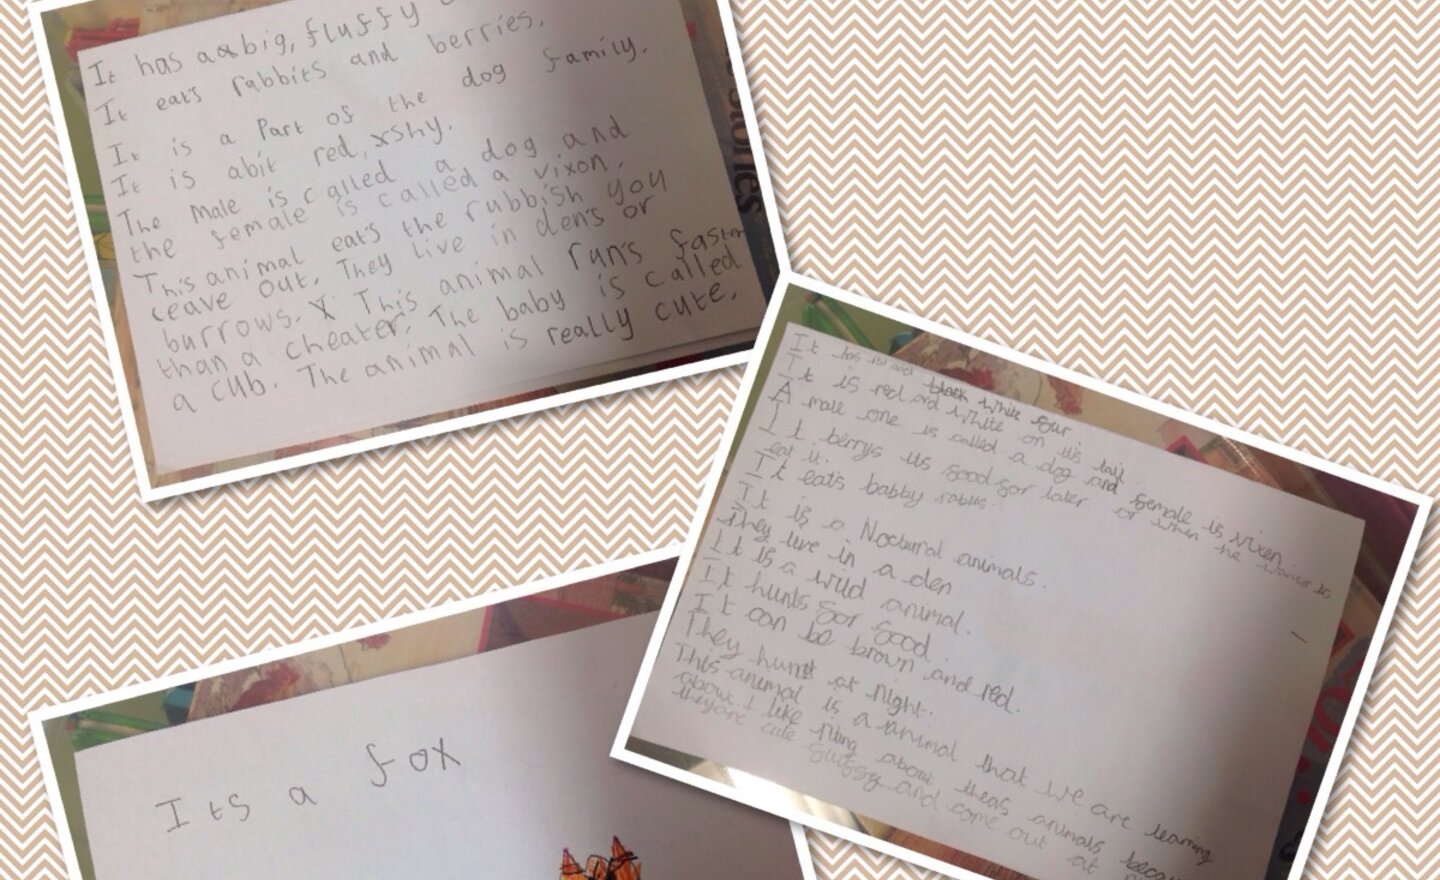 It has a big, fluffy
It eats rabbits and berries.
It is a Part of the dog family.
It is abit red, xshy.
The male is called a dog and
the female is called a vixon.
This animal eats the rubbish you
leave out. They live in dens or
burrows. X This animal run's faster
than a cheater. The baby is called
a cub. The animal is really cute.
stories
It has red and black white fur.
It is red and white on its tail.
A male one is called a dog and female is vixen.
It berrys its food for later or when he wants to
eat it.
It eats babby rabits.
It is a Noctural animals.
They live in a den
It is a wild animal.
It hunts for food.
It can be brown and red.
They hunt at night.
This animal is a animal that we are learning
about. I like about theas animals
they are cute fluffy and come out at
Its a fox